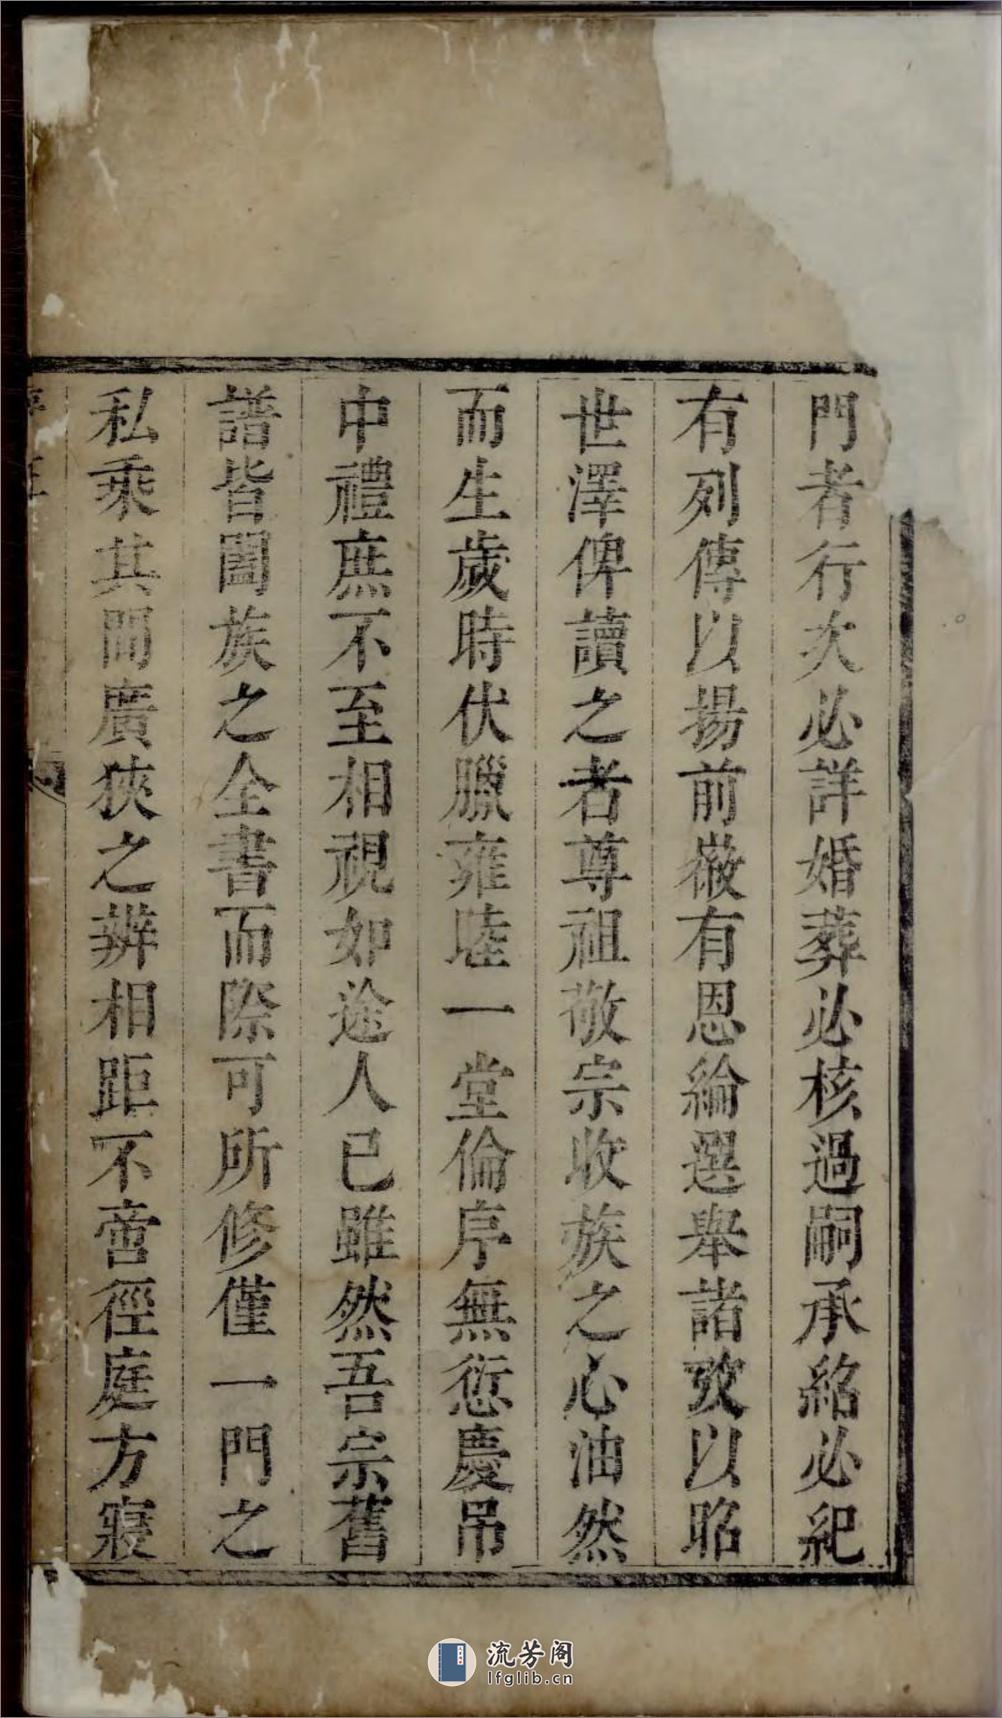 門者行次必詳婚葬必核過嗣承紹必紀
有列傳以揚前徽有恩綸選舉諸攷以昭
世澤俾讀之者尊祖敬宗收族之心油然
而生歲時伏臘雍睦一堂倫序無愆慶吊
中禮庶不至相視如途人已雖然吾宗舊
譜皆闔族之全書而際可所修僅一門之
私乘其間廣狹之辨相距不啻徑庭方寢
流芳阁
lfglib.cn